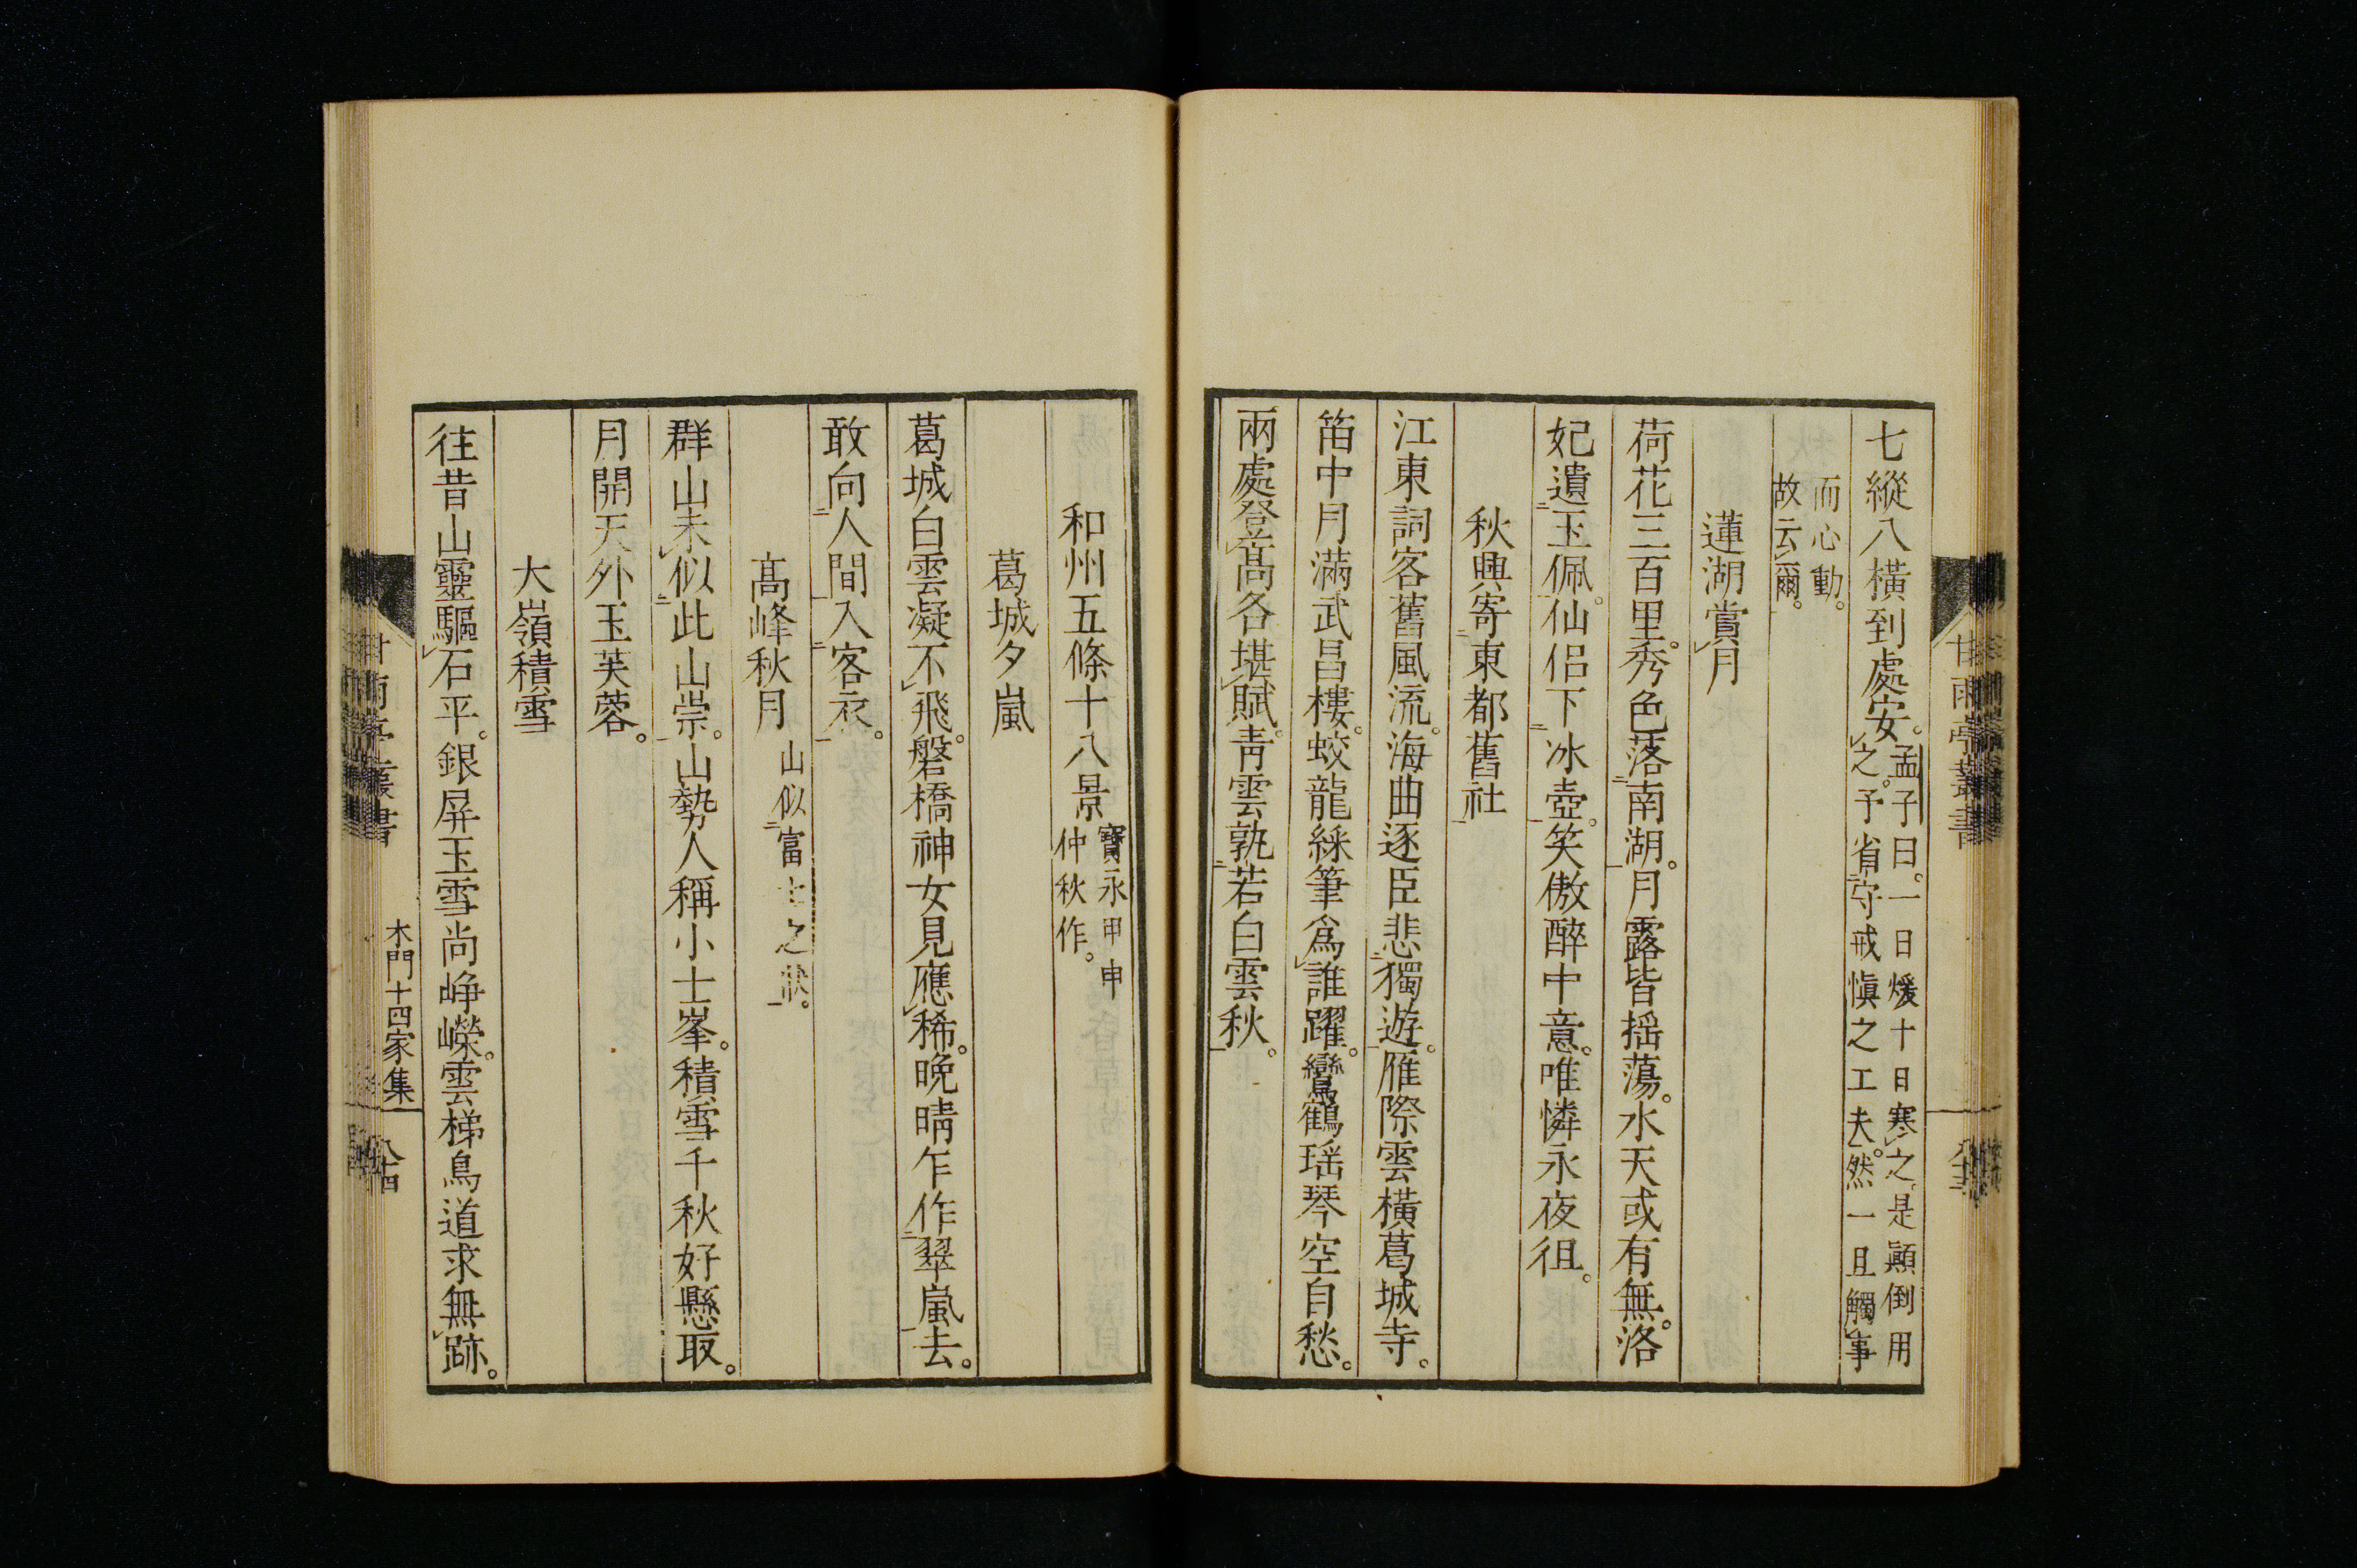 七縱八橫到處安。孟子曰。一日煖十日寒之。是顚倒用
之。予省守戒愼之工夫。然一旦觸事
而心動。
故云爾。
蓮湖賞月
荷花三百里。秀色落南湖。月露皆揺蕩。水天或有無。洛
妃遺玉佩。仙侶下冰壺。笑傲醉中意。唯憐永夜徂。
秋興寄東都舊社
江東詞客舊風流。海曲逐臣悲獨遊。雁際雲橫葛城寺。
笛中月滿武昌樓。蛟龍綵筆爲誰躍。鸞鶴瑶琴空自愁。
兩處登髙各堪賦。靑雲孰若白雲秋。
甘雨亭叢書
和州五條十八景 寶永甲申
仲秋作。
葛城夕嵐
葛城白雲凝不飛。磐橋神女見應稀。晩晴乍作翠嵐去。
敢向人間入客衣。
髙峰秋月 山似富士之狀。
群山未似此山崇。山勢人稱小士峯。積雪千秋好懸取。
月開天外玉芙蓉。
大嶺積雪
往昔山靈驅石平。銀屏玉雪尚崢嶸。雲梯鳥道求無跡。
甘雨亭叢書
木門十四家集 八十四